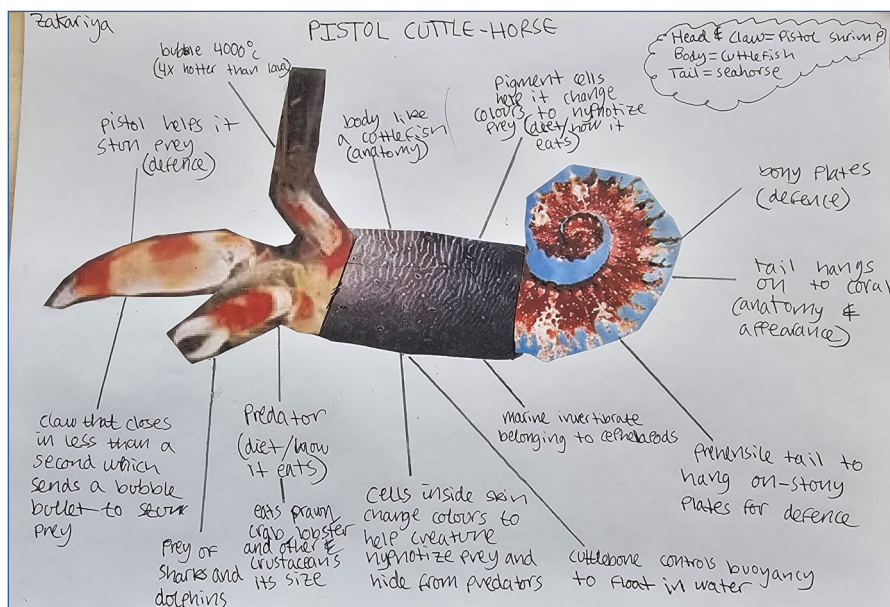 Zakariya
PISTOL CUTTLE-HORSE
Head & Claw = Pistol shrimp
Body = Cuttlefish
Tail = seahorse
bubble 4000°c
(4x hotter than lava)
pistol helps it
stun prey
(defence)
body like
a cuttlefish
(anatomy)
Pigment cells
here it change
colours to hypnotize
prey (diet/how it
eats)
bony plates
(defence)
tail hangs
on to coral
(anatomy &
appearance)
claw that closes
in less than a
second which
sends a bubble
bullet to stun
prey
Prey of
sharks and
dolphins
Predator
(diet/how
it eats)
eats prawn
crab, lobster
and other &
crustaceans
its size
cells inside skin
change colours to
help creature
hypnotize prey and
hide from predators
marine invertibrate
belonging to cephelapods
cuttlebone controls buoyancy
to float in water
Prehensile tail to
hang on-stony
plates for defence